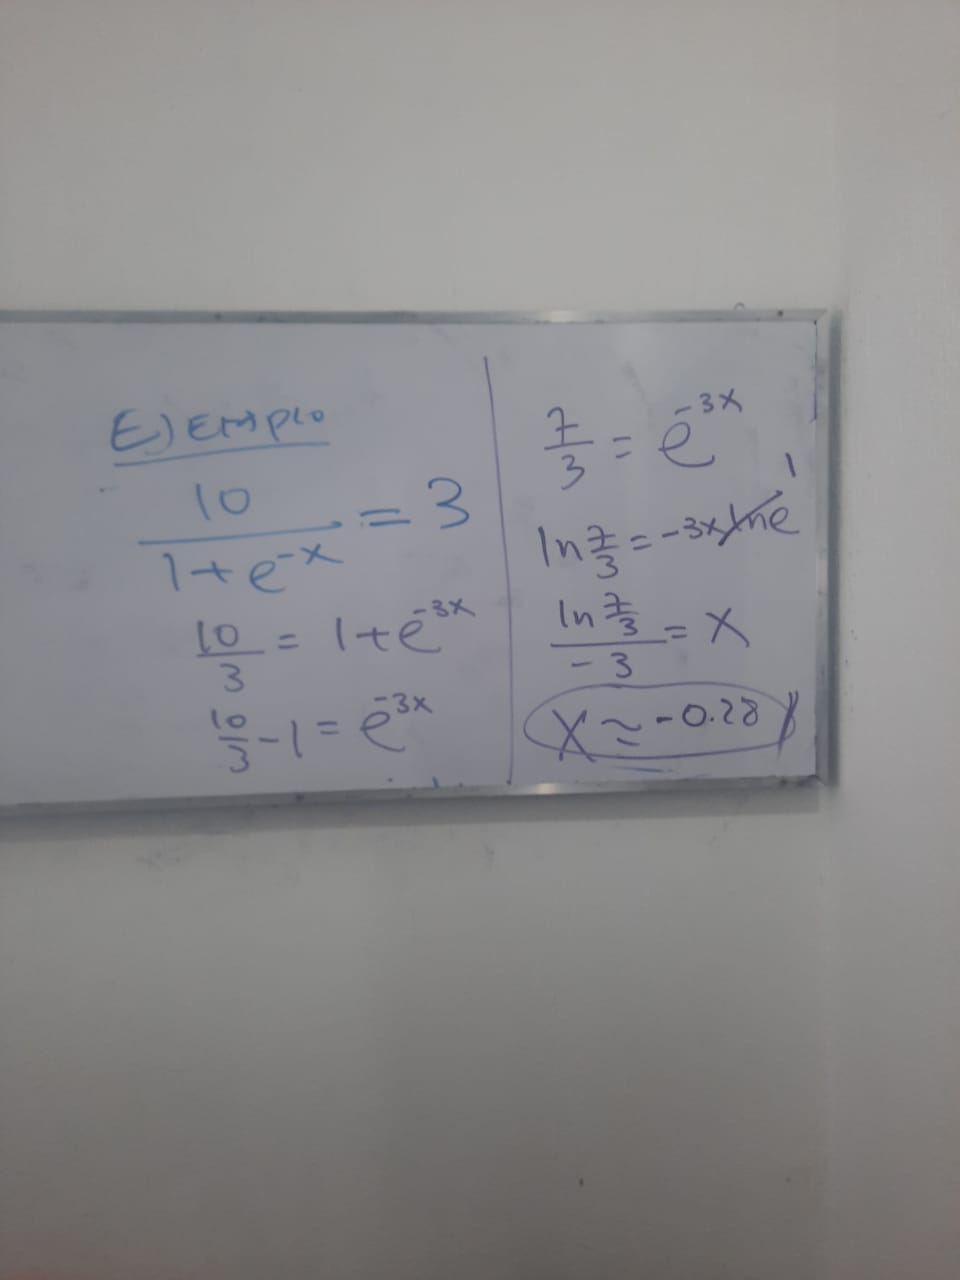 Ejemplo
10/(1+e^-x) = 3
10/3 = 1+e^-3x
10/3 -1 = e^-3x
7/3 = e^-3x
ln 7/3 = -3x ln e 1
(ln 7/3)/-3 = x
x ≈ -0.28